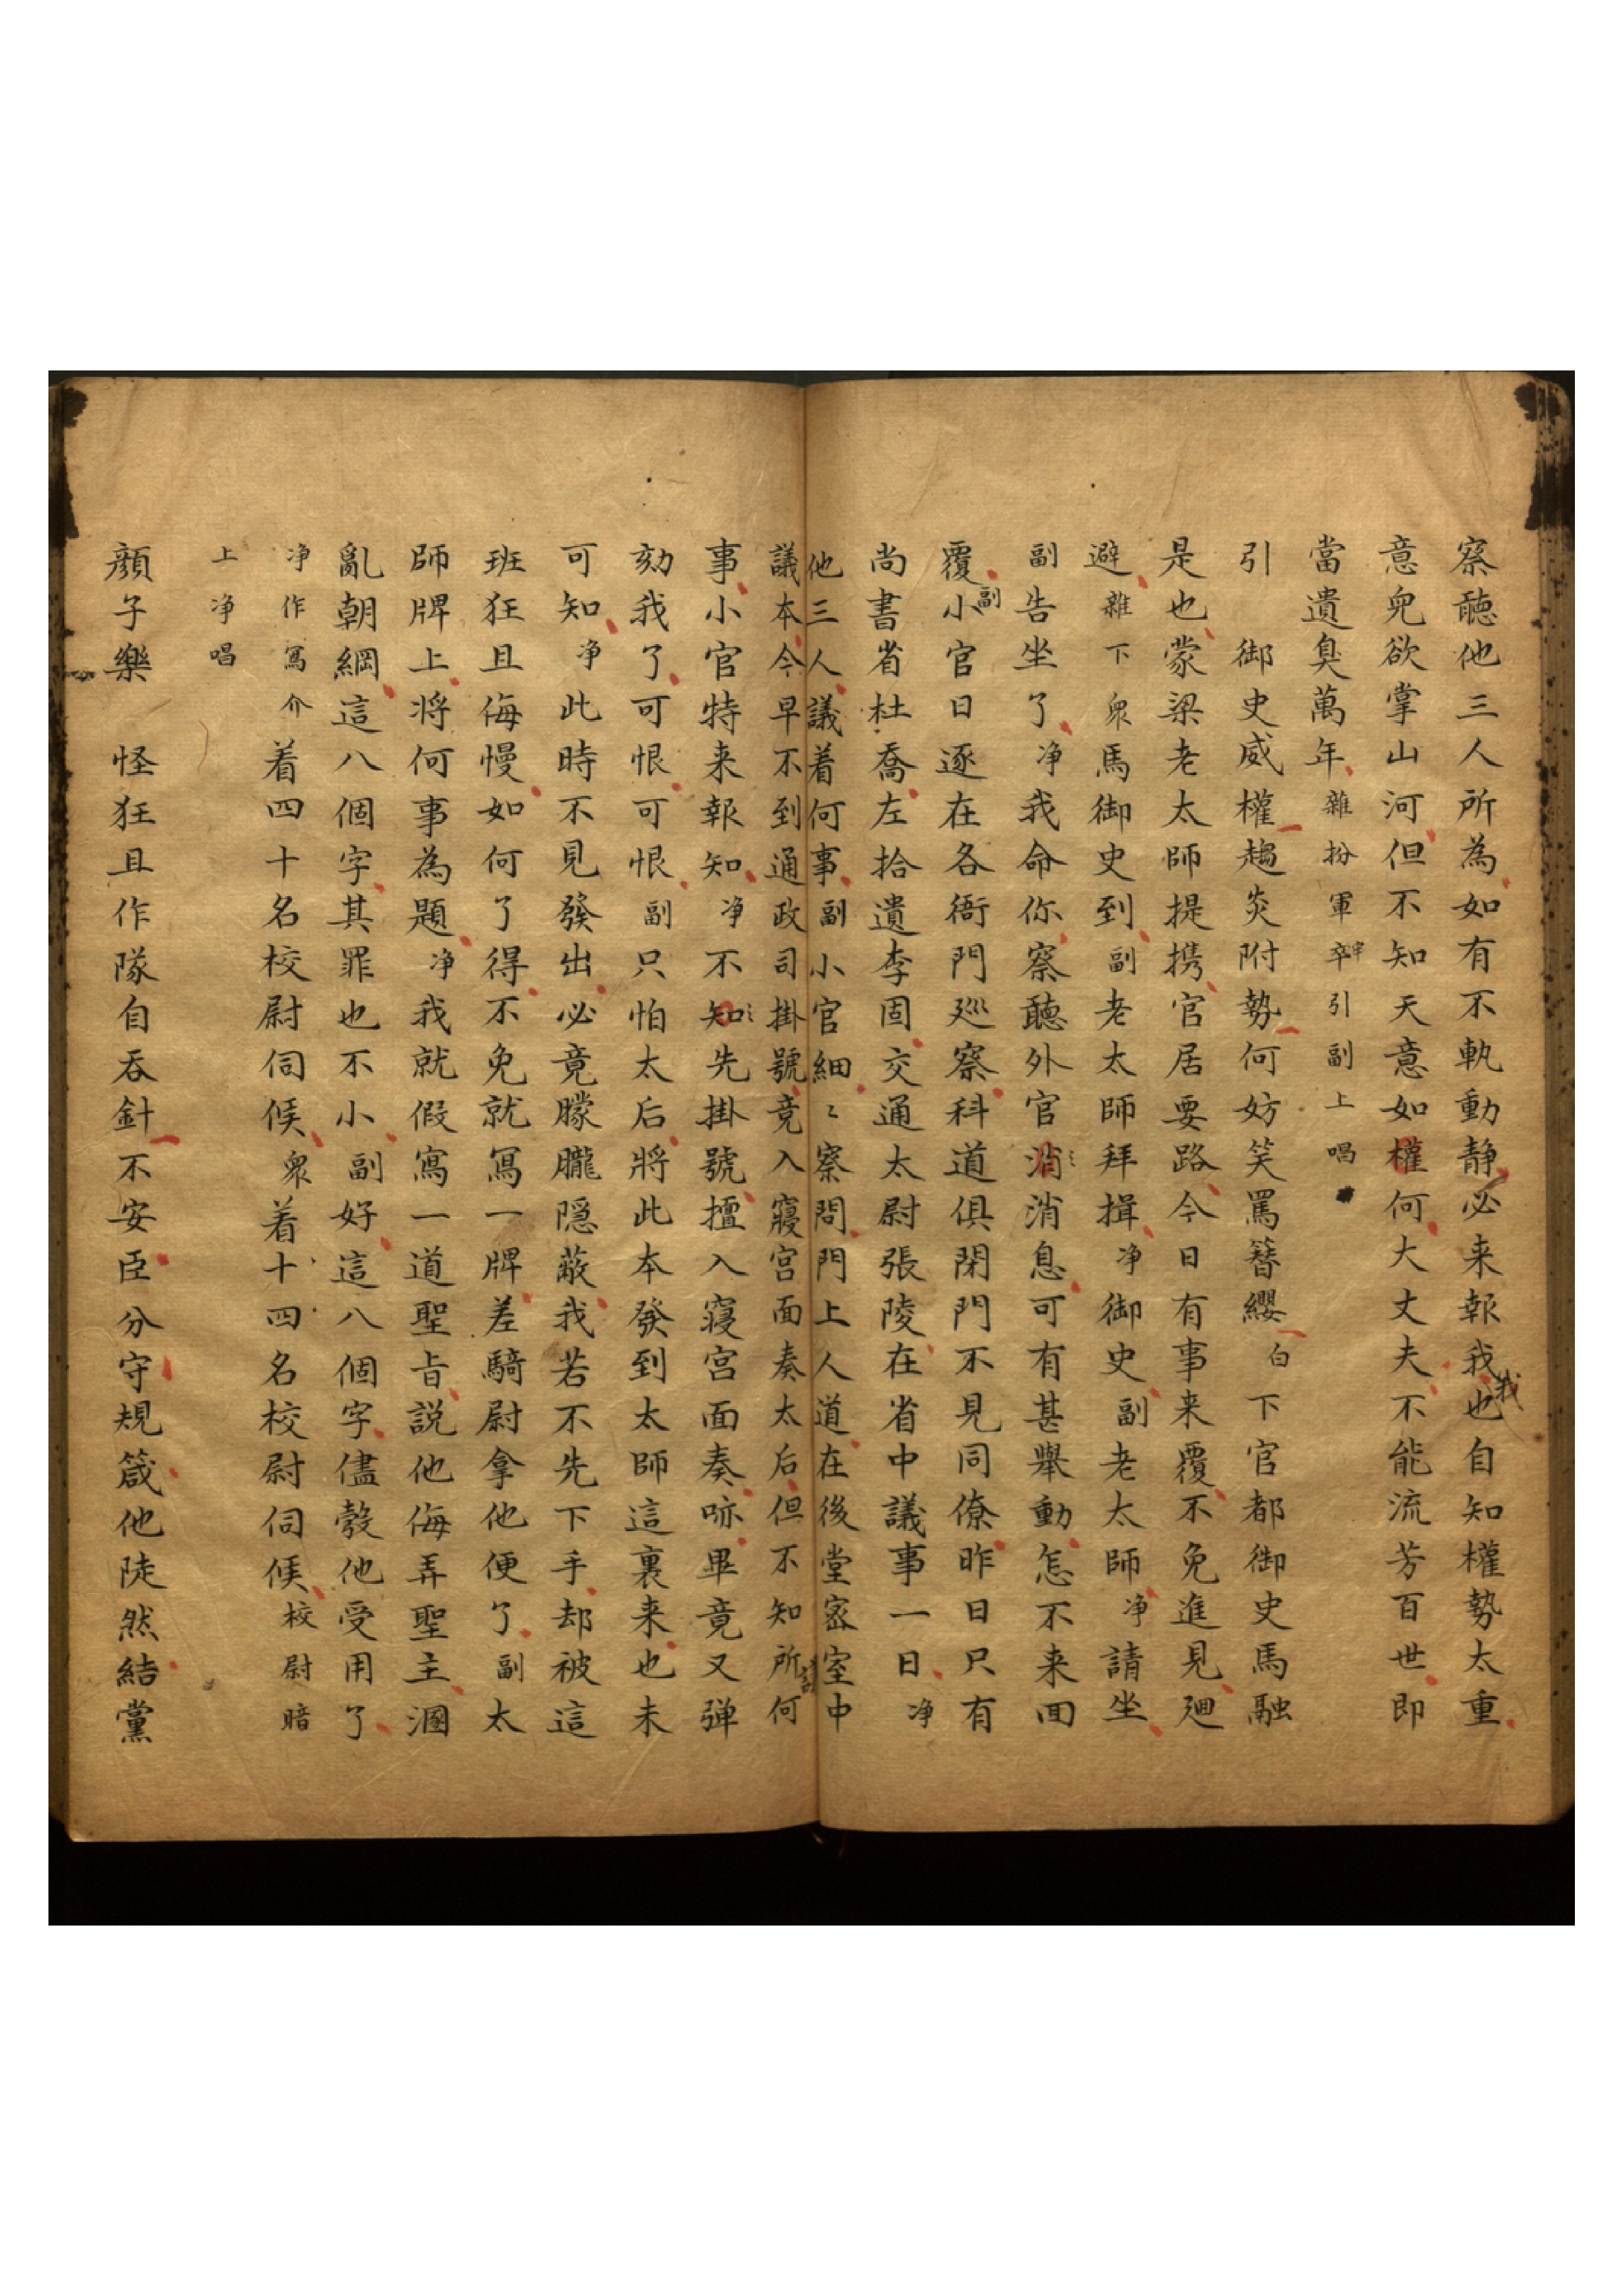 察聽他三人所為如有不軌動静必来報我也我自知權勢太重
意兒欲掌山河但不知天意如權何大丈夫不能流芳百世即
當遺臭萬年雜扮軍卒引副上唱
引　御史威權趨炎附勢何妨笑罵簪纓白下官都御史馬融
是也蒙梁老太師提携官居要路今日有事来覆不免進見廻
避雜下衆馬御史到副老太師拜揖净御史副老太師净請坐
副告坐了净我命你察聽外官消消息可有甚舉動怎不来回
覆副小官日逐在各衙門廵察科道俱閉門不見同僚昨日只有
尚書省杜喬左拾遺李固交通太尉張陵在省中議事一日净
他三人議着何事副小官細〻察問門上人道在後堂密室中
議本今早不到通政司掛號竟入寢宫面奏太后但不知所議何
事小官特来報知净不知先掛號擅入寢宫面奏咏畢竟又弹
劾我了可恨可恨副只怕太后將此本發到太師這裏来也未
可知净此時不見發出必竟朦朧隠蔽我若不先下手却被這
班狂且侮慢如何了得不免就冩一牌差騎尉拿他便了副太
師牌上将何事為題净我就假寫一道聖旨説他侮弄聖主溷
亂朝綱這八個字其罪也不小副好這八個字儘彀他受用了
净作冩介着四十名校尉伺候衆着十四名校尉伺候校尉暗
上净唱
顏子樂　怪狂且作隊自吞針不安臣分守規箴他陡然結黨